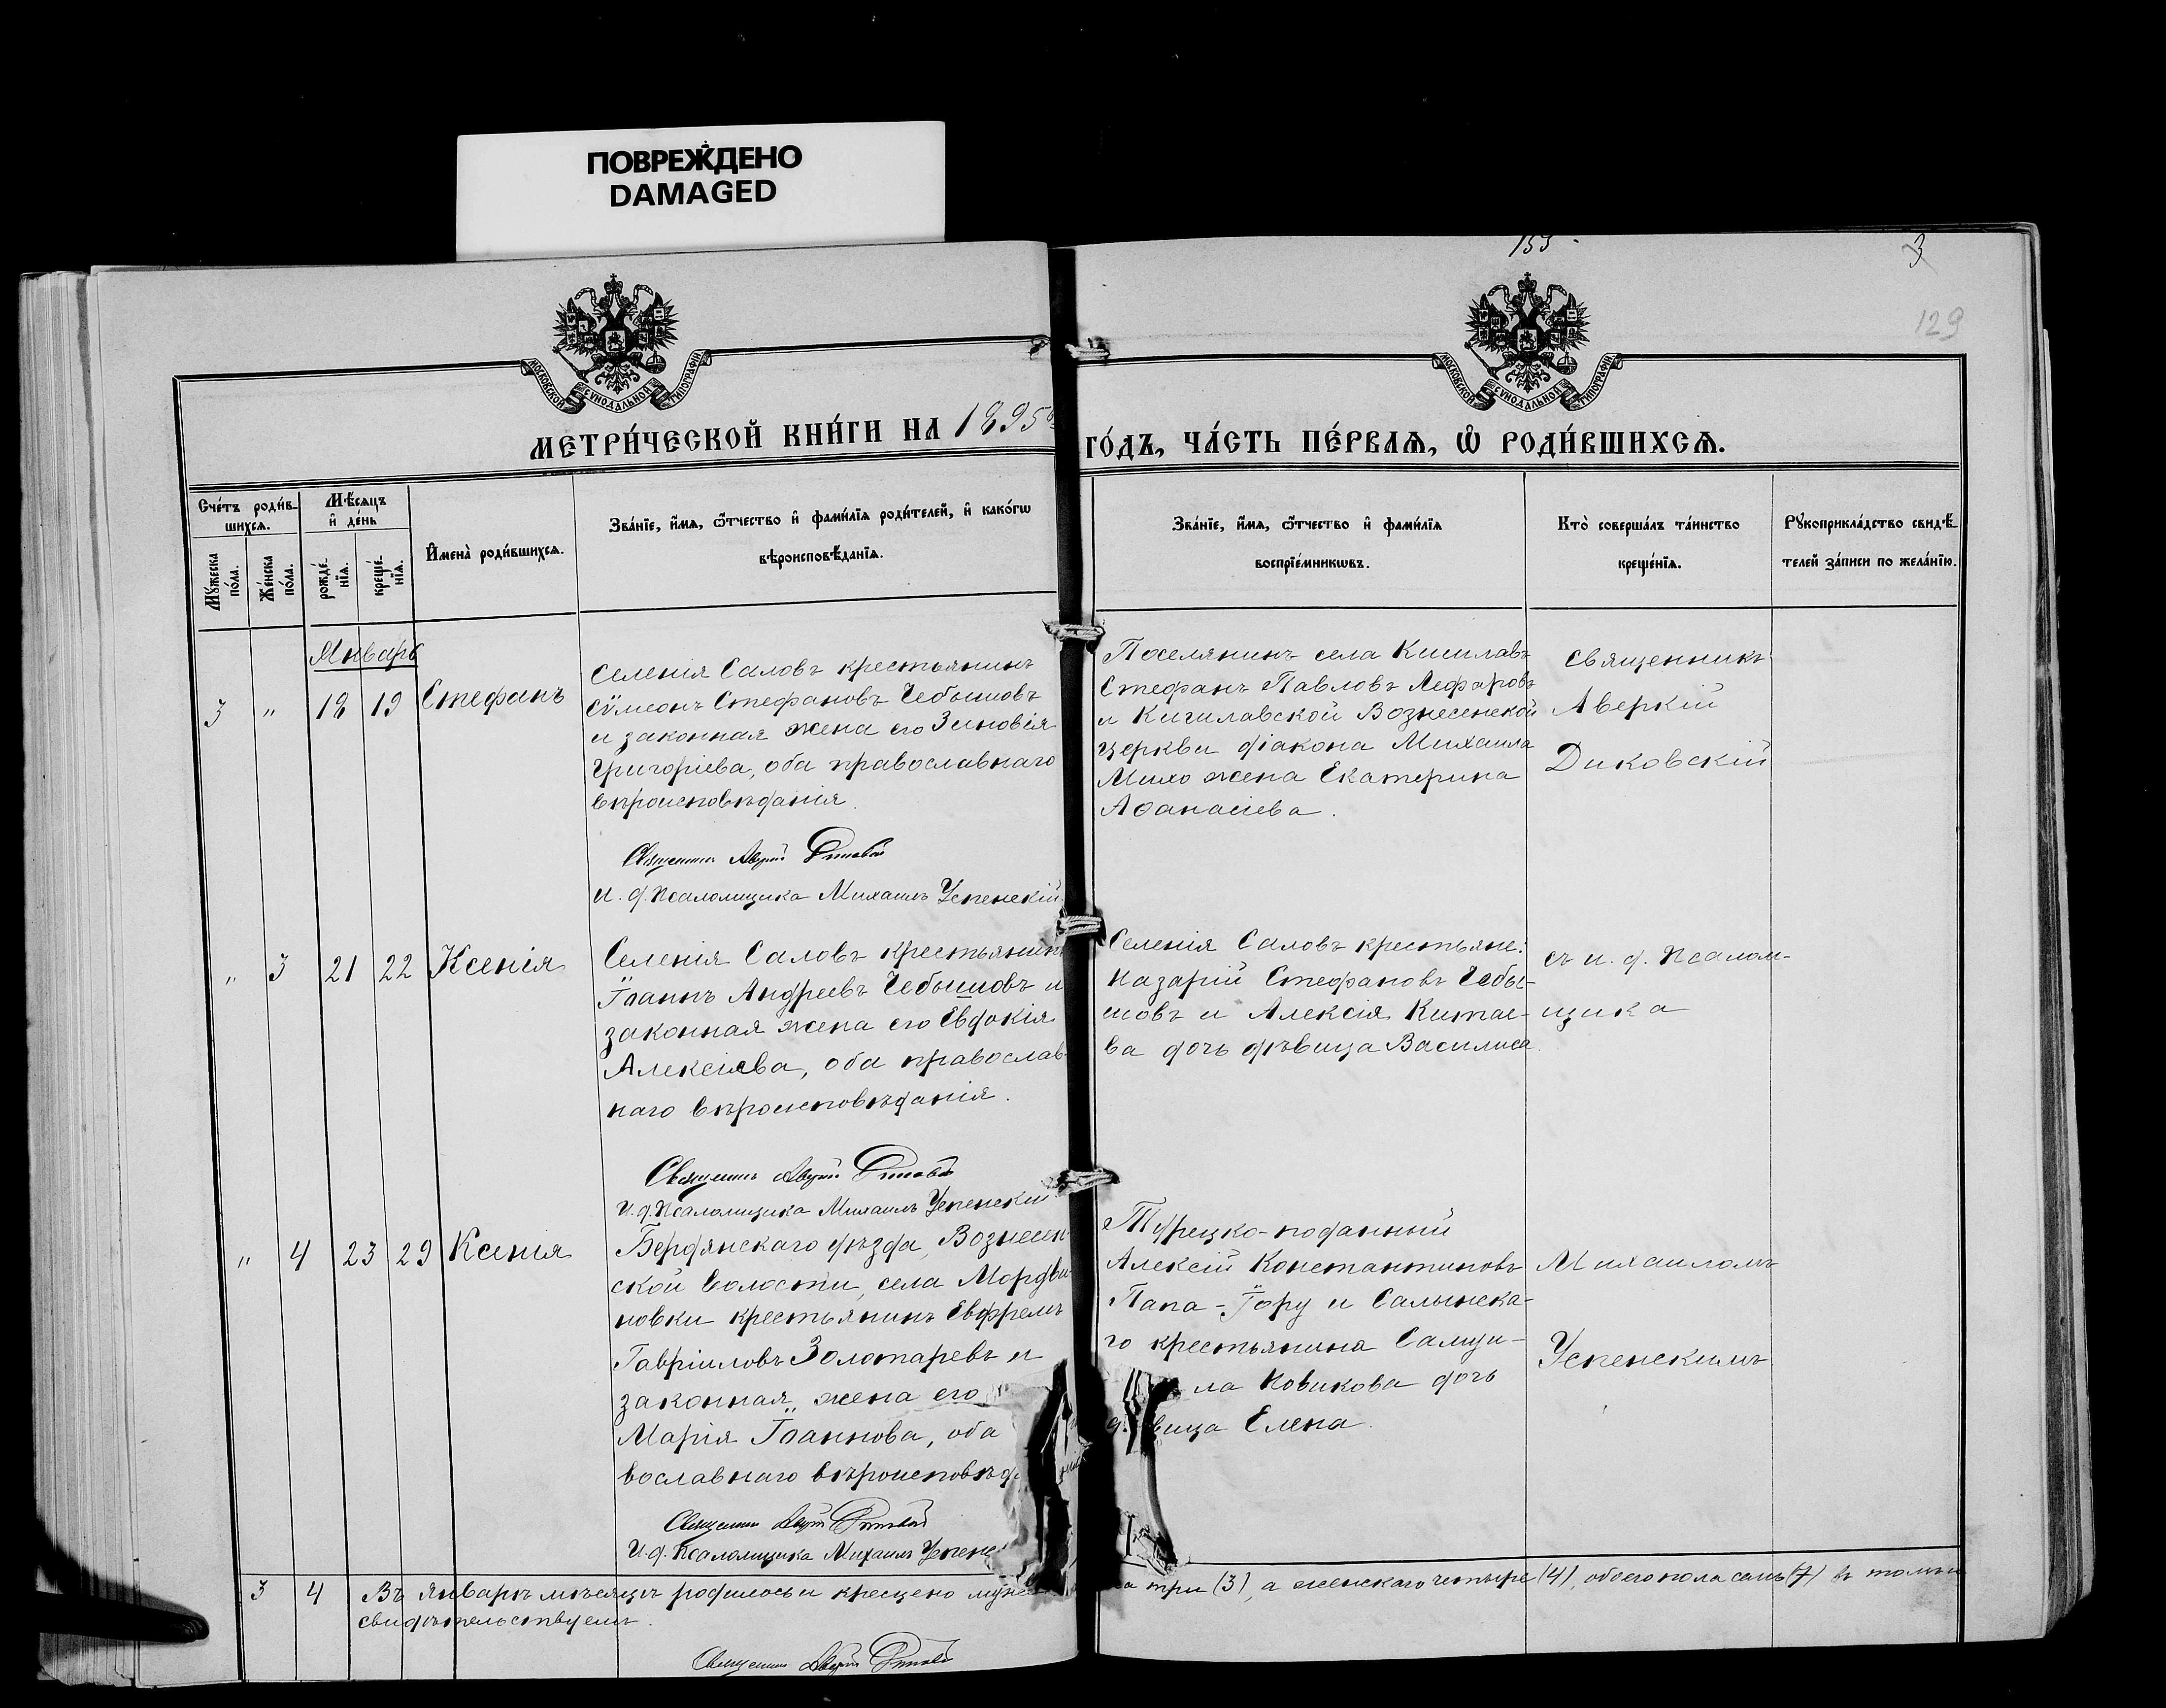 ПОВРЕЖДЕНО
DAMAGED
155
3
129
МОСКОВСКОЙ СѴНОДАЛЬНОЙ ТИПОГРАФІИ
МОСКОВСКОЙ СѴНОДАЛЬНОЙ ТИПОГРАФІИ
МЕТРИ́ЧЕСКОЙ КНИ́ГИ НА 1895 ГО́ДЪ, ЧА́СТЬ ПЕ́РВАѦ, Ѡ҆ РОДИ́ВШИХСѦ.
Сче́тъ роди́в-
шихсѧ.
Мѣ́сѧцъ
и҆ де́нь
Мꙋ́жеска
по́ла.
Же́нска
по́ла.
рожде́-
нїѧ.
креще́-
нїѧ.
И҆мена̀ роди́вшихсѧ.
Зва́нїе, и҆́мѧ, ѻ҆́тчество и҆ фами́лїѧ роди́телей, и҆ како́гѡ
вѣроисповѣ́данїѧ.
Зва́нїе, и҆́мѧ, ѻ҆́тчество и҆ фами́лїѧ
воспрїе́мникѡвъ.
Кто̀ соверша́лъ та́инство
креще́нїѧ.
Рꙋкоприкла́дство свидѣ́-
телей за́писи по жела́нїю.
Январь
3 " 18 19 Стефанъ
Селенія Саловъ крестьянинъ
Сѵмеонъ Стефановъ Чебышовъ
и законная жена его Зиновія
Григоріева, оба православнаго
вѣроисповѣданія.
Священникъ Аверкій Диковскій
И. д. Псаломщика Михаилъ Успенскій
Поселянинъ села Кишлавъ
Стефанъ Павловъ Лефаровъ
и Кишлавской Вознесенской
церкви діакона Михаила
Михо жена Екатерина
Аѳанасіева.
Священникъ
Аверкій
Диковскій
" 3 21 22 Ксенія
Селенія Саловъ крестьянинъ
Іоаннъ Андреевъ Чебышовъ и
законная жена его Евдокія
Алексіева, оба православ-
наго вѣроисповѣданія.
Священникъ Аверкій Диковскій
И. д. Псаломщика Михаилъ Успенскій
Селенія Саловъ крестьяне:
Назарій Стефановъ Чебы-
шовъ и Алексія Китае-
ва дочь дѣвица Василиса
съ и. д. Псалом-
щика
" 4 23 29 Ксенія
Бердянскаго уѣзда, Вознесен-
ской волости, села Мордви-
новки крестьянинъ Евфремъ
Гавріиловъ Золотаревъ и
законная жена его
Марія Іоаннова, оба
вославнаго вѣроисповѣд
Священникъ Аверкій Диковскій
И. д. Псаломщика Михаилъ Успенс
Турецко-поданный
Алексій Константиновъ
Папа-Іору и Салынска-
го крестьянина Самуи-
ла Новикова дочь
д вица Елена.
Михаиломъ
Успенскимъ
3 4 Въ Январѣ мѣсяцѣ родилось и крещено муже а три (3), а женскаго четыре (4), обоего пола семь (7) въ томъ и
свидѣтельствуемъ.
Священникъ Аверкій Диковскій